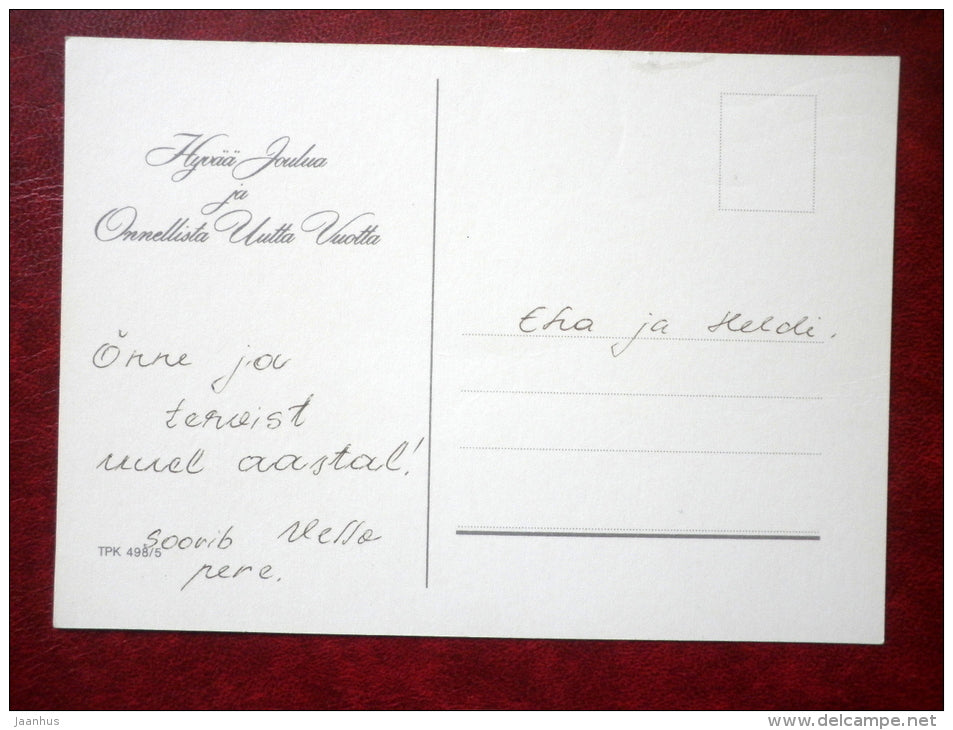 Hyvää Joulua
ja
Onnellista Uutta Vuotta
Õnne ja
tervist
uuel aastal!
soovib Vello
pere.
TPK 498/5
Eha ja Heldi.
jaanhus
www.delcampe.net